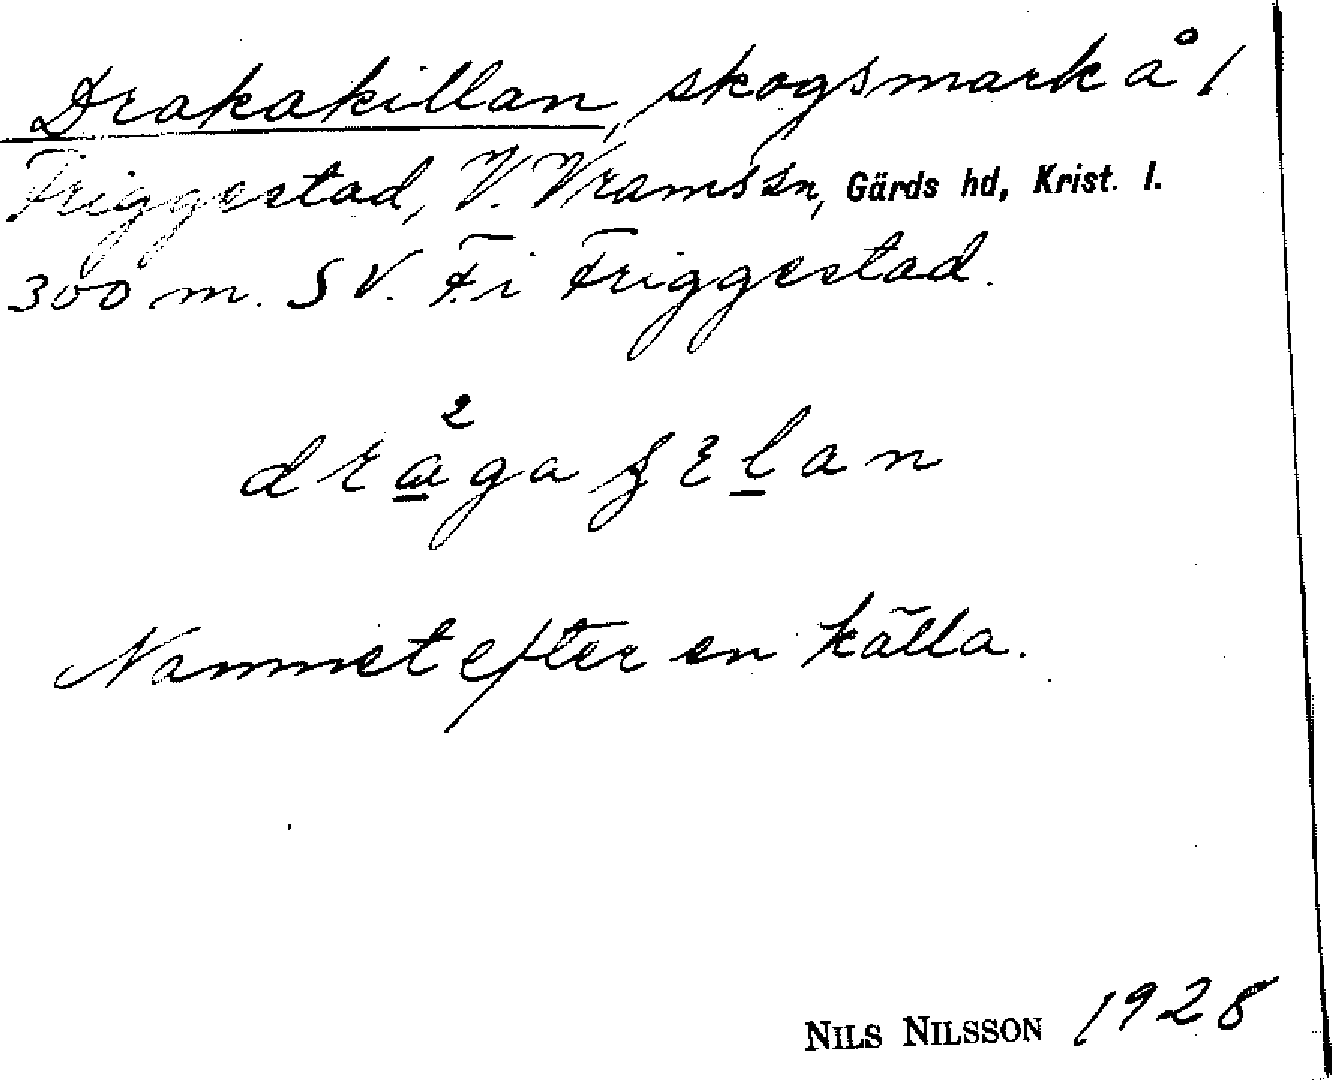 Drakakillan, skogsmark å 1
Friggestad, V. Vrams sn, Gärds hd, Krist. l.
300 m. SV. F. i Friggestad.
2
Namnet efter en källa.
NILS NILSSON 1928